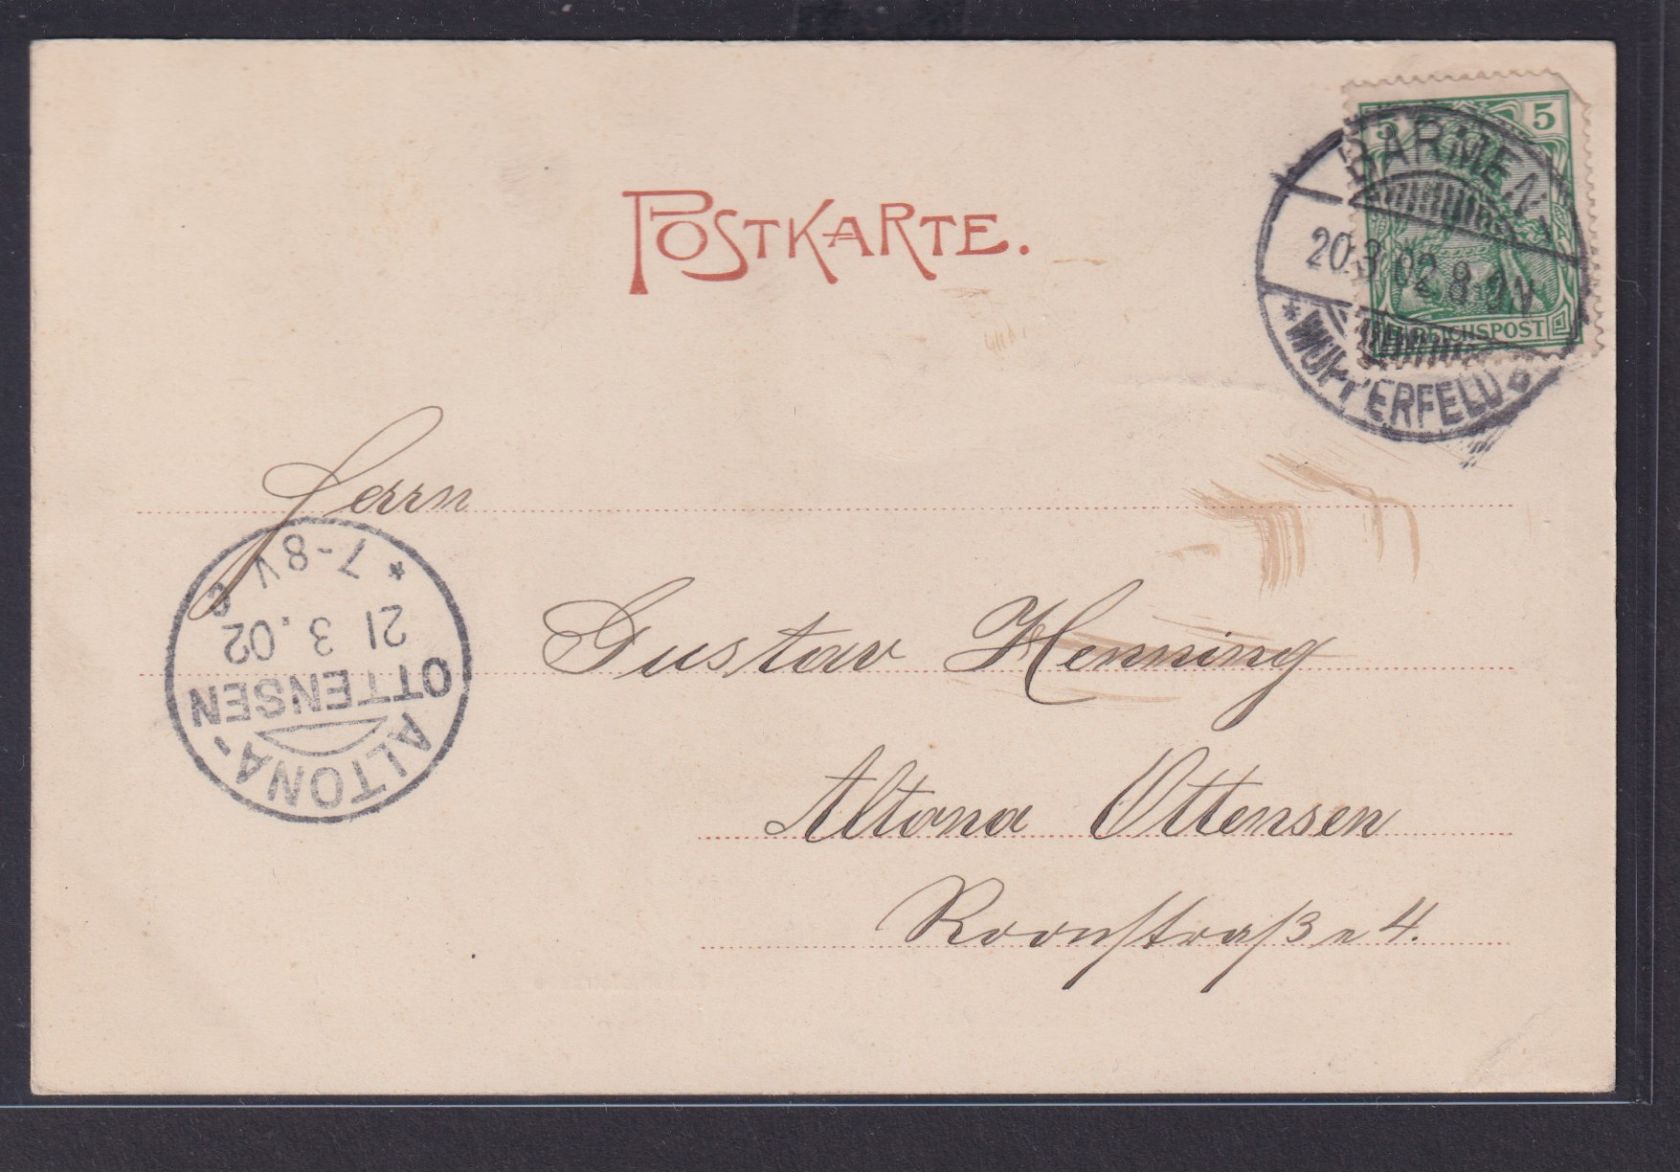 5 5
REICHSPOST
BARMEN-
20.3.02.8-9V
* WUPPERFELD a
POSTKARTE.
Herrn
Gustav Henning
Altona Ottensen
Roonstraße 4.
ALTONA-
OTTENSEN
21 3.02
* 7-8V c